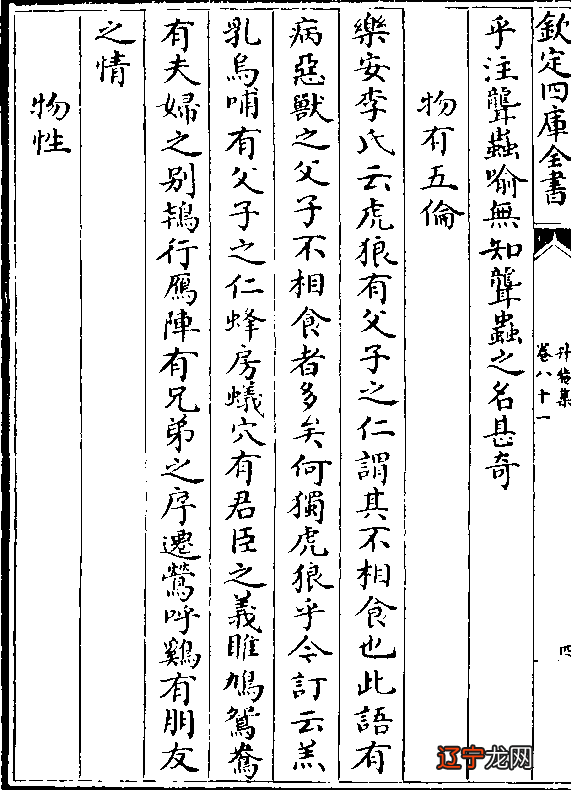 欽定四庫全書
卷八十一
四
乎注聾蟲喻無知聾蟲之名甚奇
物有五倫
樂安李氏云虎狼有父子之仁謂其不相食也此語有
病惡獸之父子不相食者多矣何獨虎狼乎今訂云羔
乳烏哺有父子之仁蜂房蟻穴有君臣之義雎鳩鴛鴦
有夫婦之别鴇行鴈陣有兄弟之序遷鶯呼鷄有朋友
之情
物性
辽宁龙网